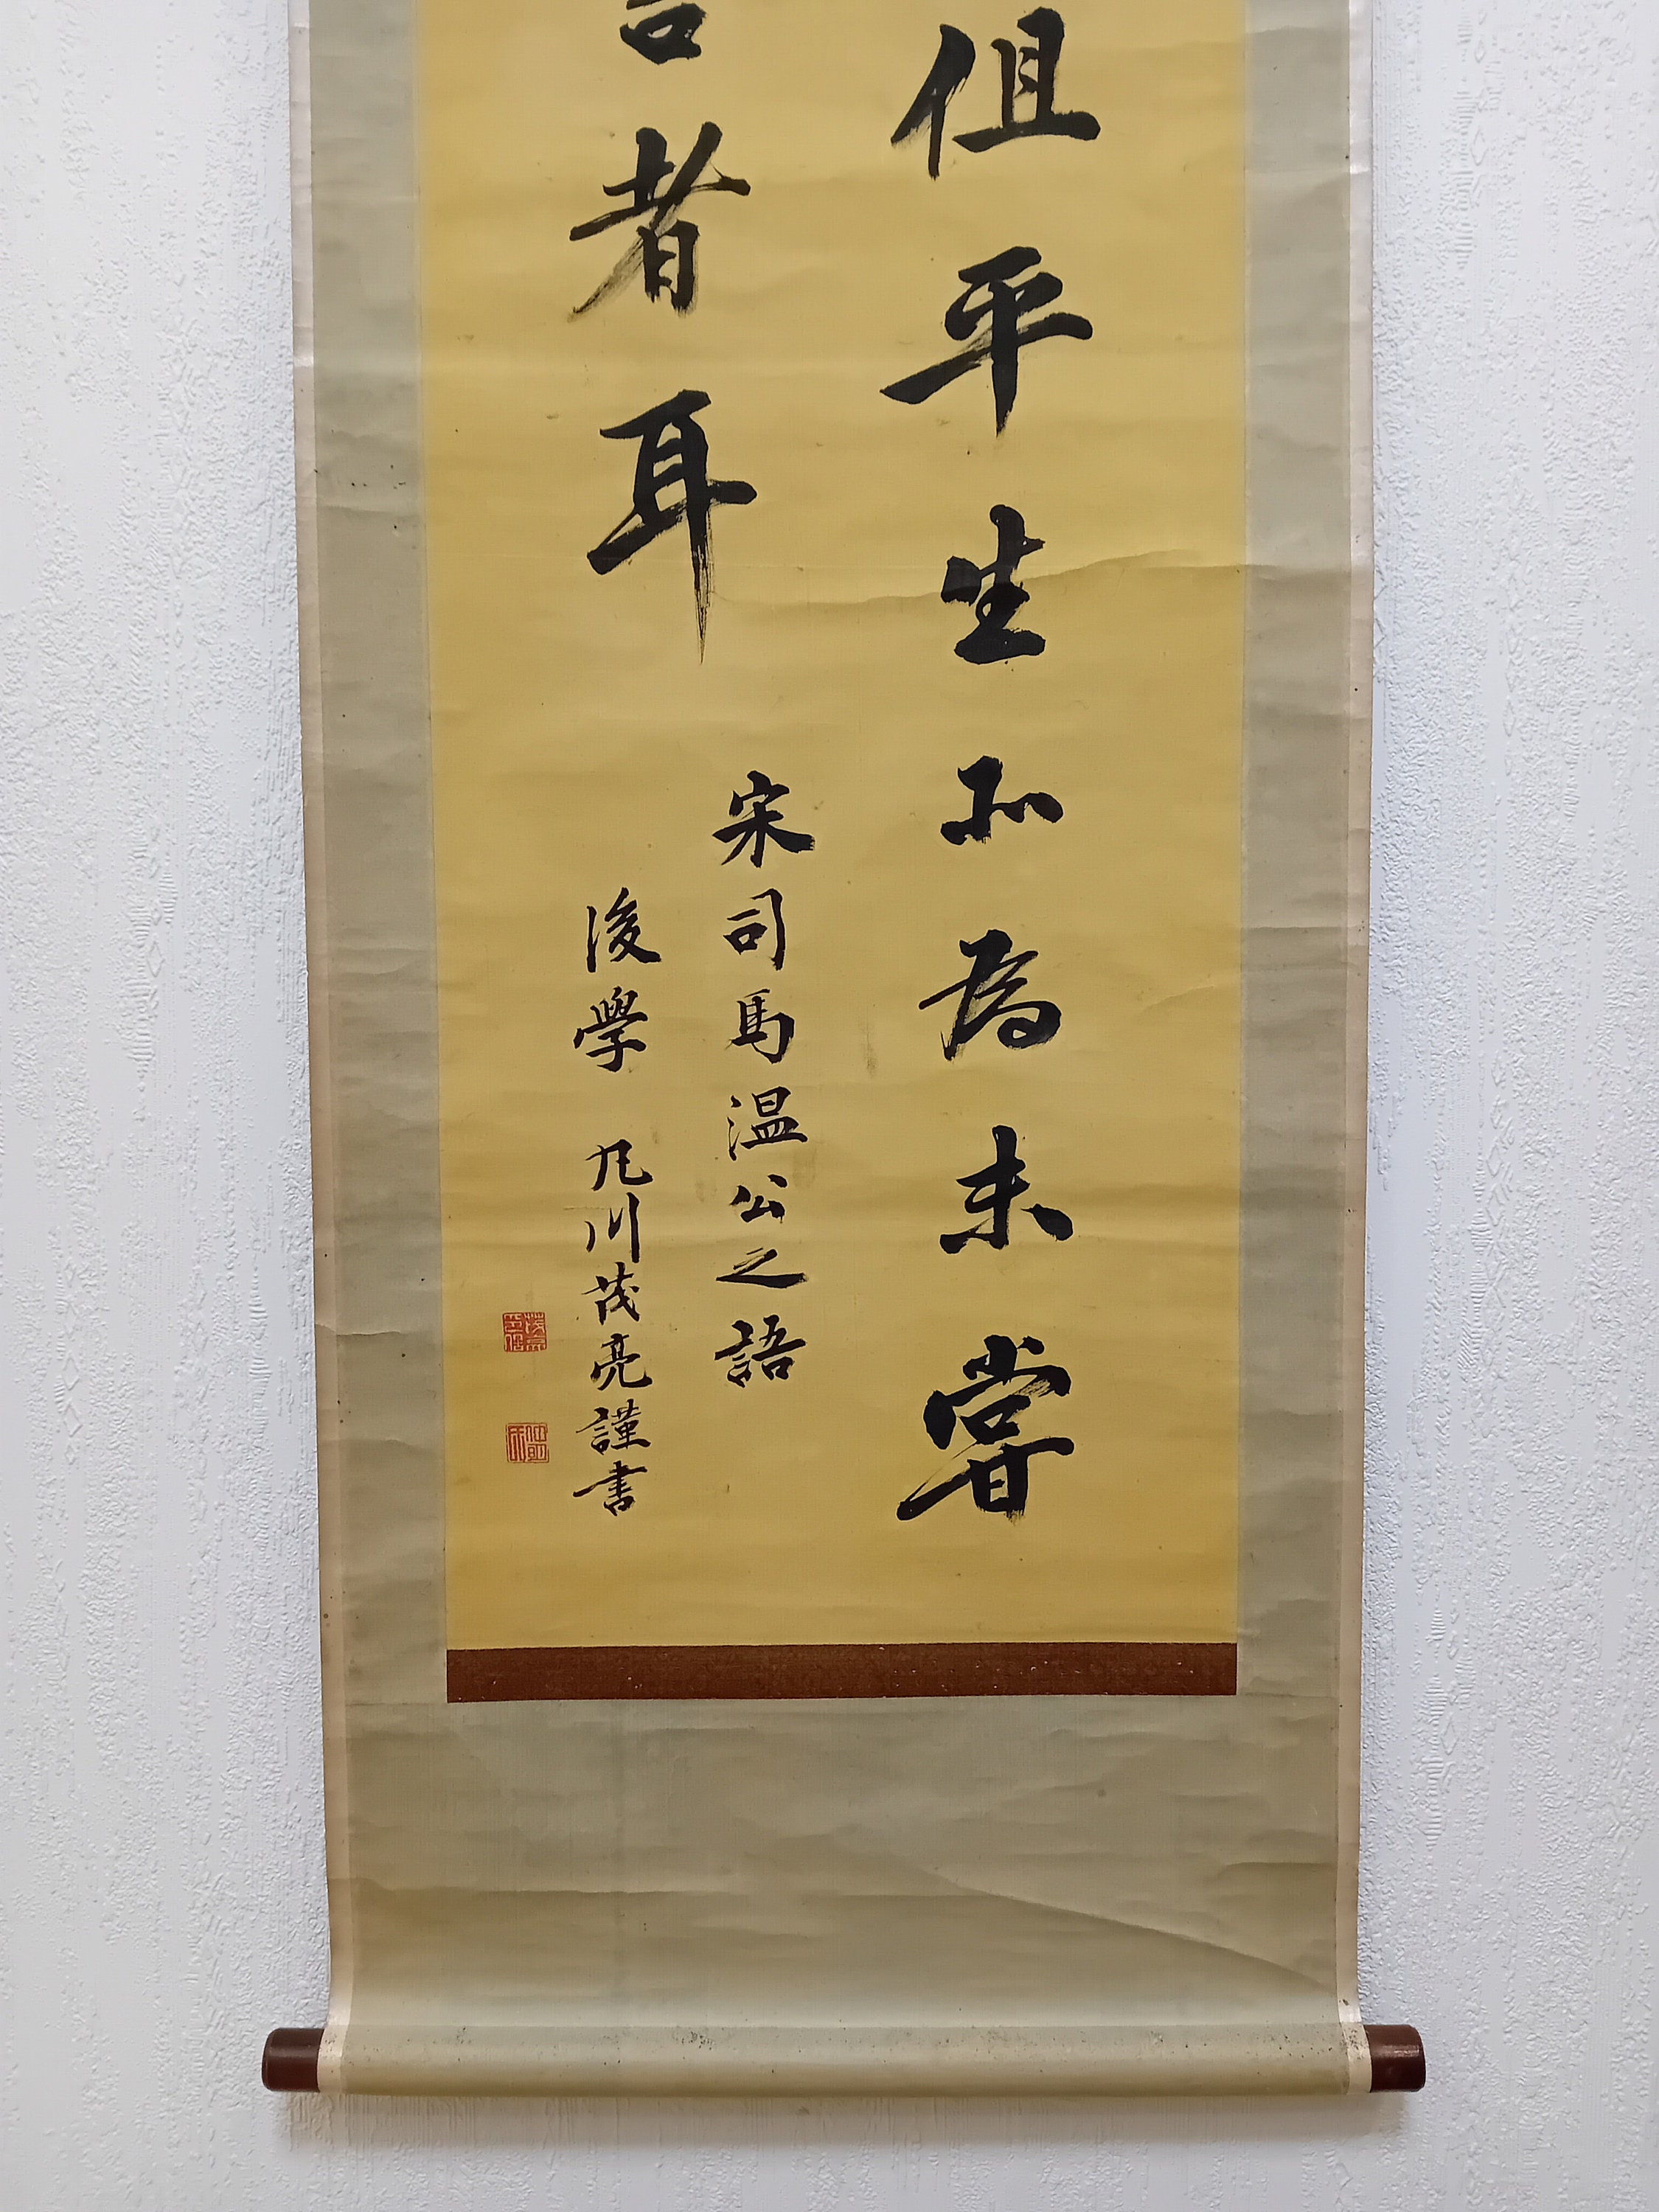 但平生所為未嘗
言者耳
宋司馬温公之語
後學 丸川茂亮謹書